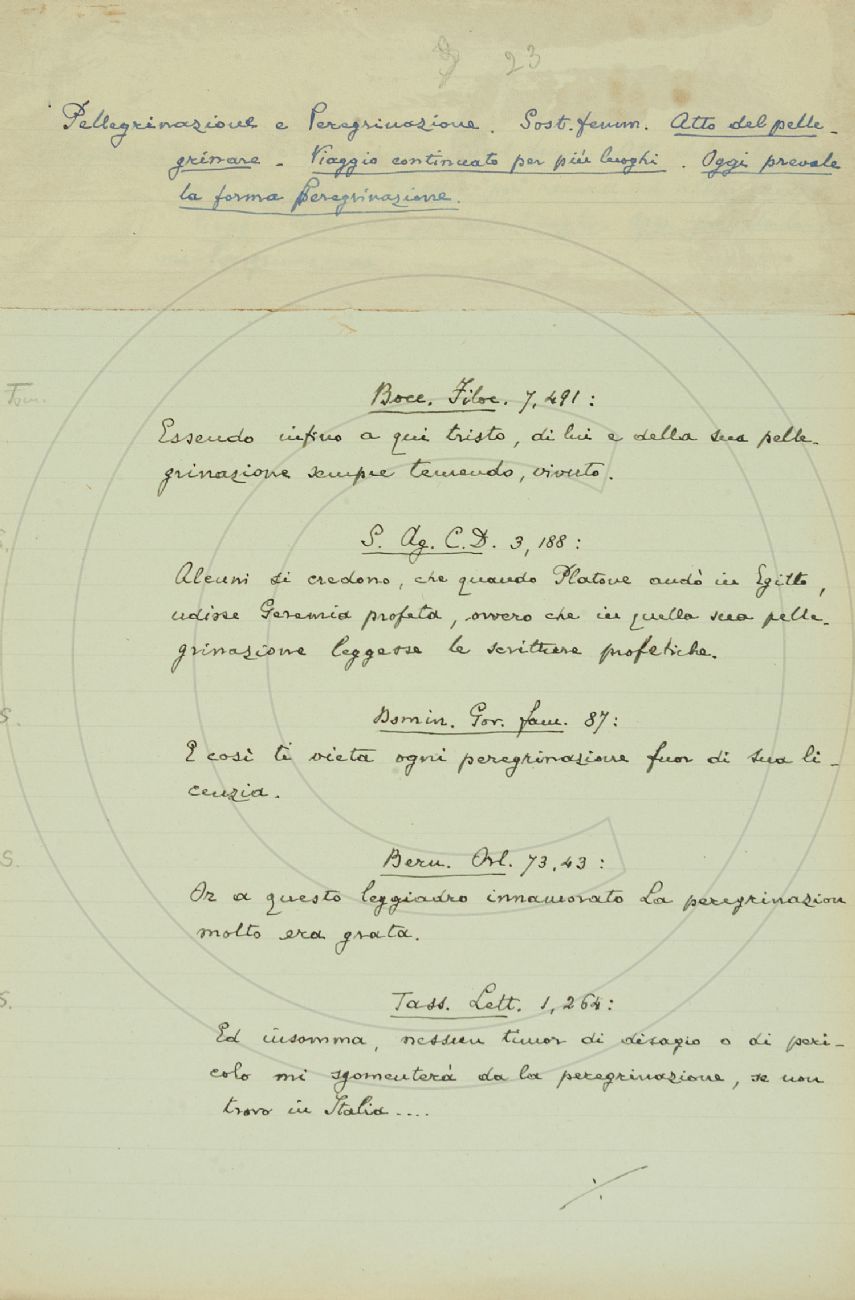 23
Pellegrinazione e Peregrinazione. Sost. femm. Atto del pelle-
grinare - Viaggio continuato per più luoghi. Oggi prevale
la forma Peregrinazione.
Bocc. Filoc. 7, 491:
Essendo infino a qui tristo, di lui e della sua pelle-
grinazione sempre temendo, vivuto.
S. Ag. C. D. 3, 188:
Alcuni si credono, che quando Platone andò in Egitto,
udisse Geremia profeta, ovvero che in quella sua pelle-
grinazione leggesse le scritture profetiche.
S.
Domin. Gov. fam. 87:
E così ti vieta ogni peregrinazione fuor di sua li-
cenzia.
S.
Bern. Orl. 73, 43:
Or a questo leggiadro innamorato La peregrinazion
molto era grata.
S.
Tass. Lett. 1, 264:
Ed insomma, nessun timor di disagio o di peri-
colo mi sgomenterà da la peregrinazione, se non
trovo in Italia ....
./.